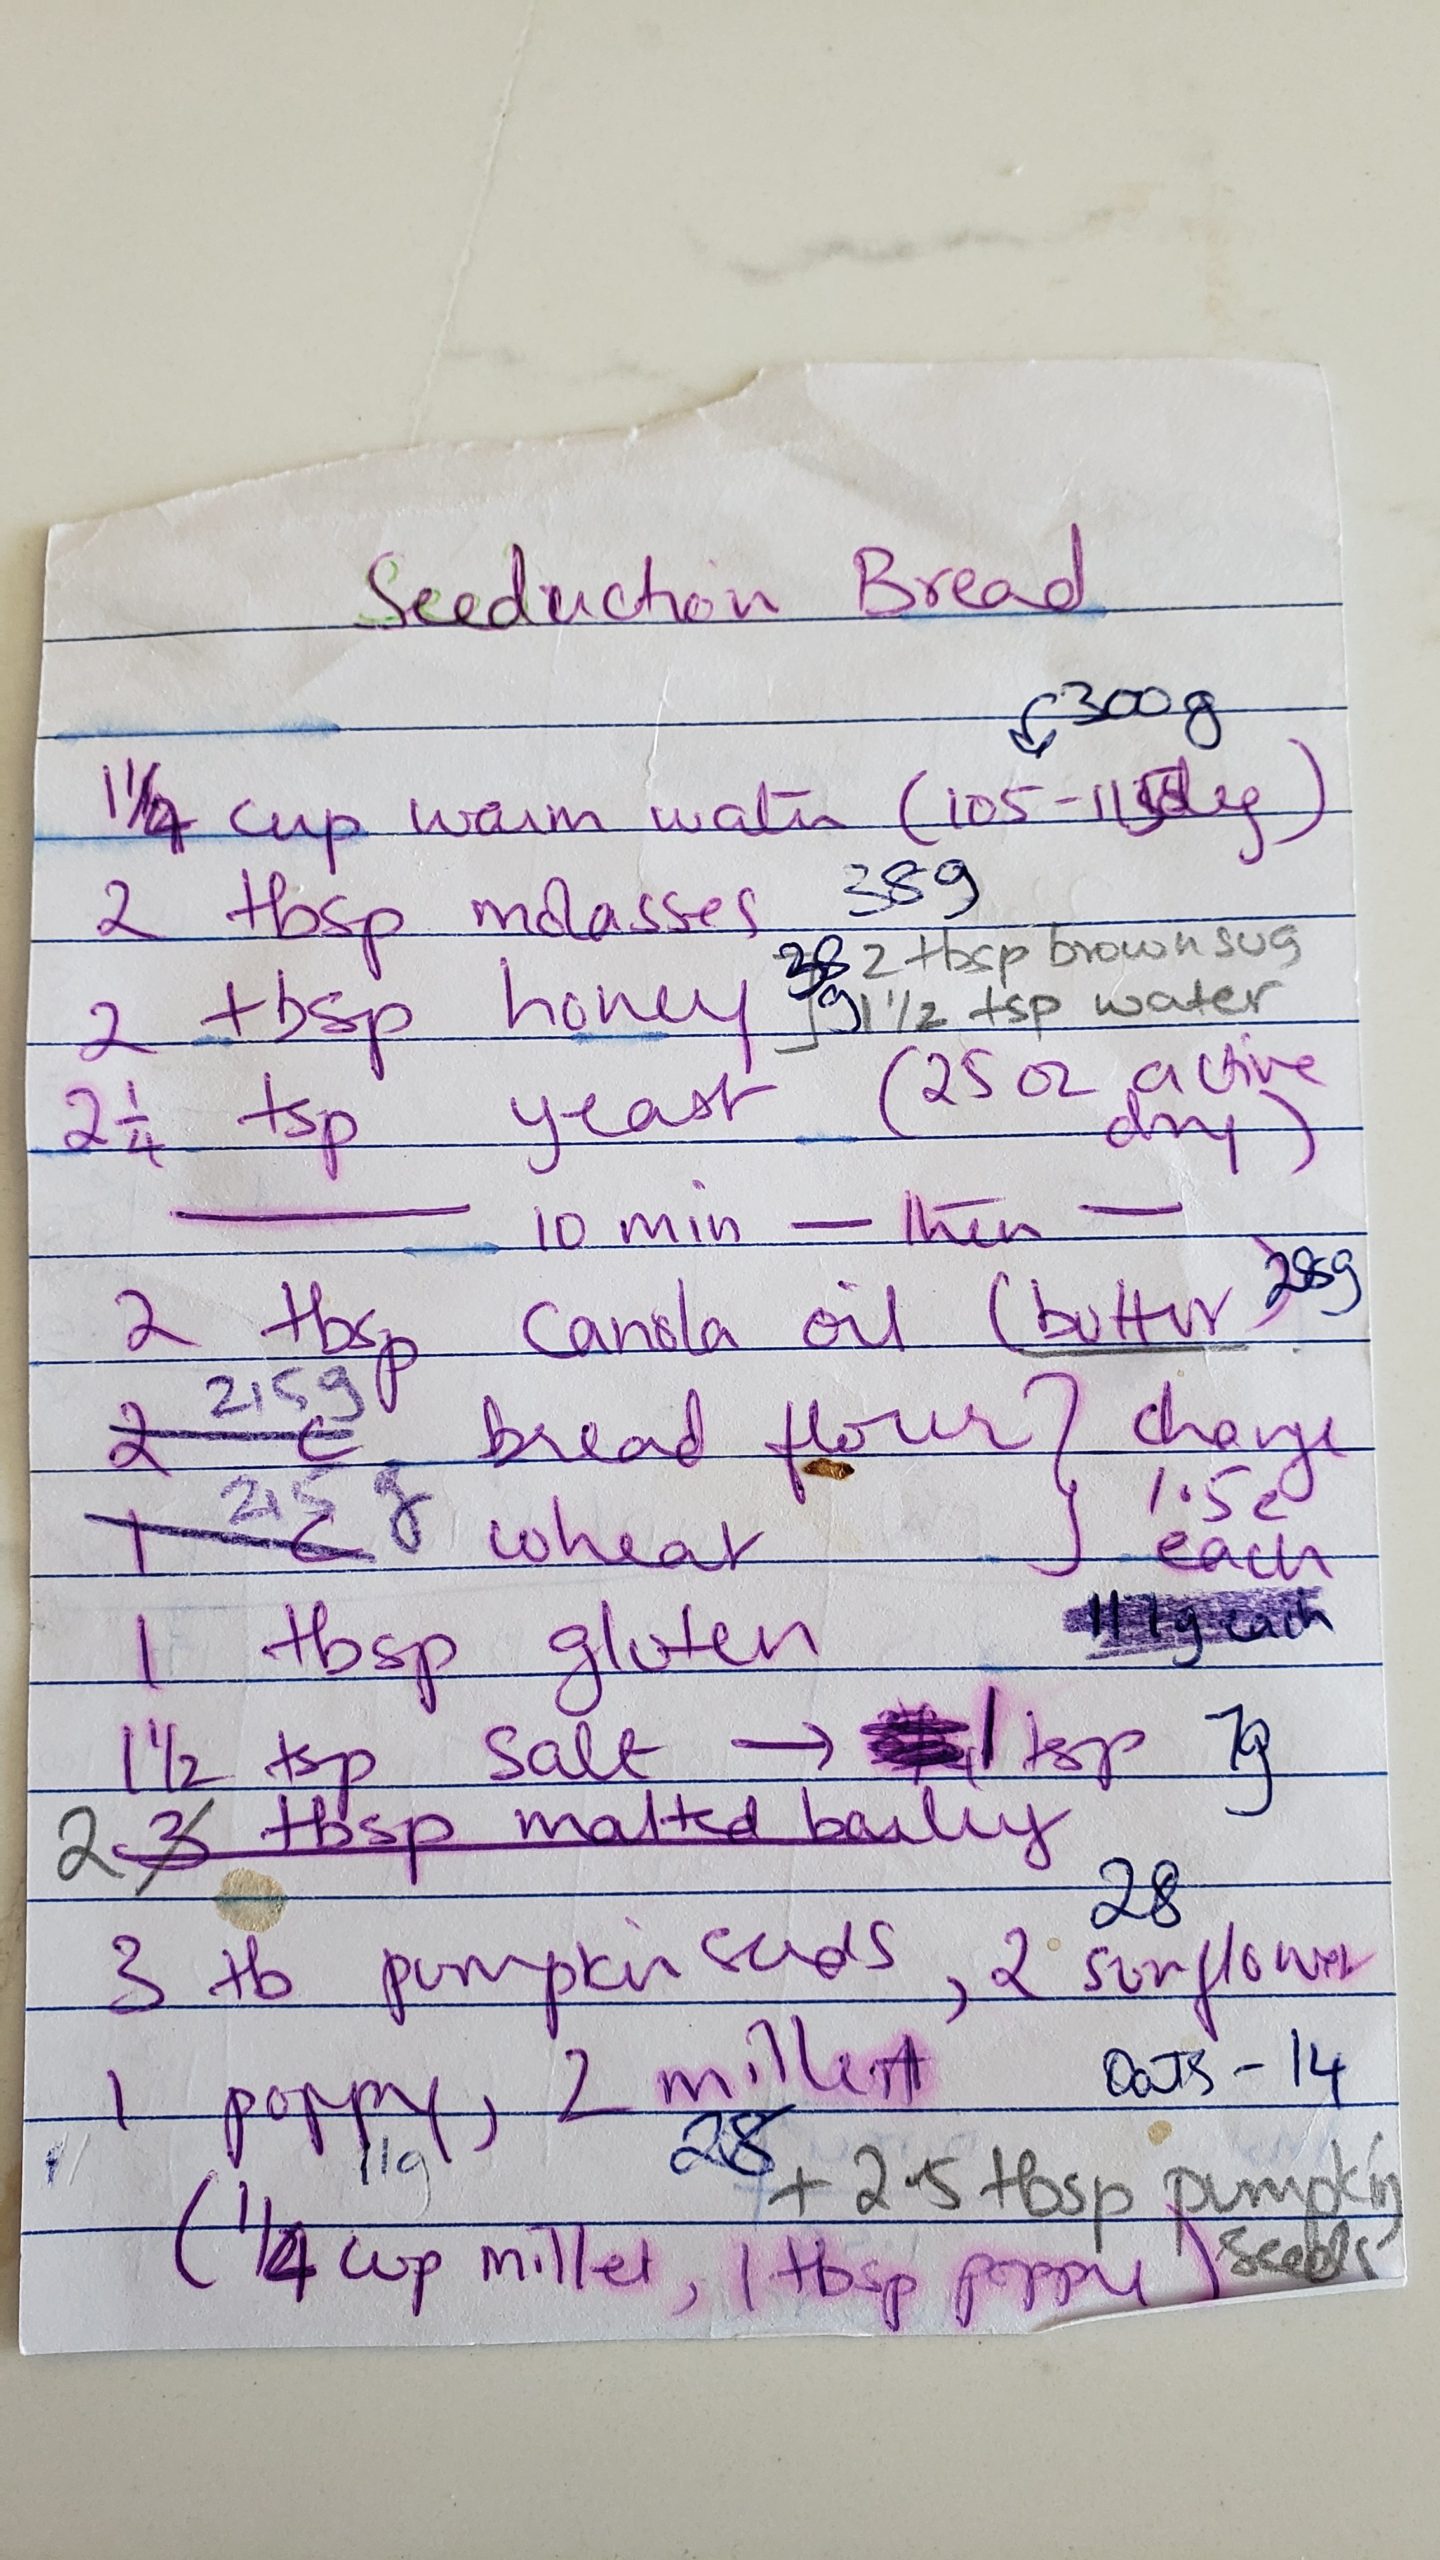 Seeduction Bread
300g
1 1/4 cup warm water (105-115deg)
2 tbsp molasses 38g
2 tbsp honey 38g 2 tbsp brown sug
1 1/2 tsp water
2 1/4 tsp yeast (25 oz active
dry)
10 min — then —
2 tbsp canola oil (butter) 28g
215g
2 c bread flour } change
1.5c
each
215g
1 c wheat
117g each
1 tbsp gluten
1 1/2 tsp salt → 1 tsp 7g
2 3 tbsp malted barley
28
3 tb pumpkin seeds, 2 sunflower
1 poppy, 2 millet Oats - 14
11g 28
+ 2.5 tbsp pumpkin
seeds
(1/4 cup millet, 1 tbsp poppy)